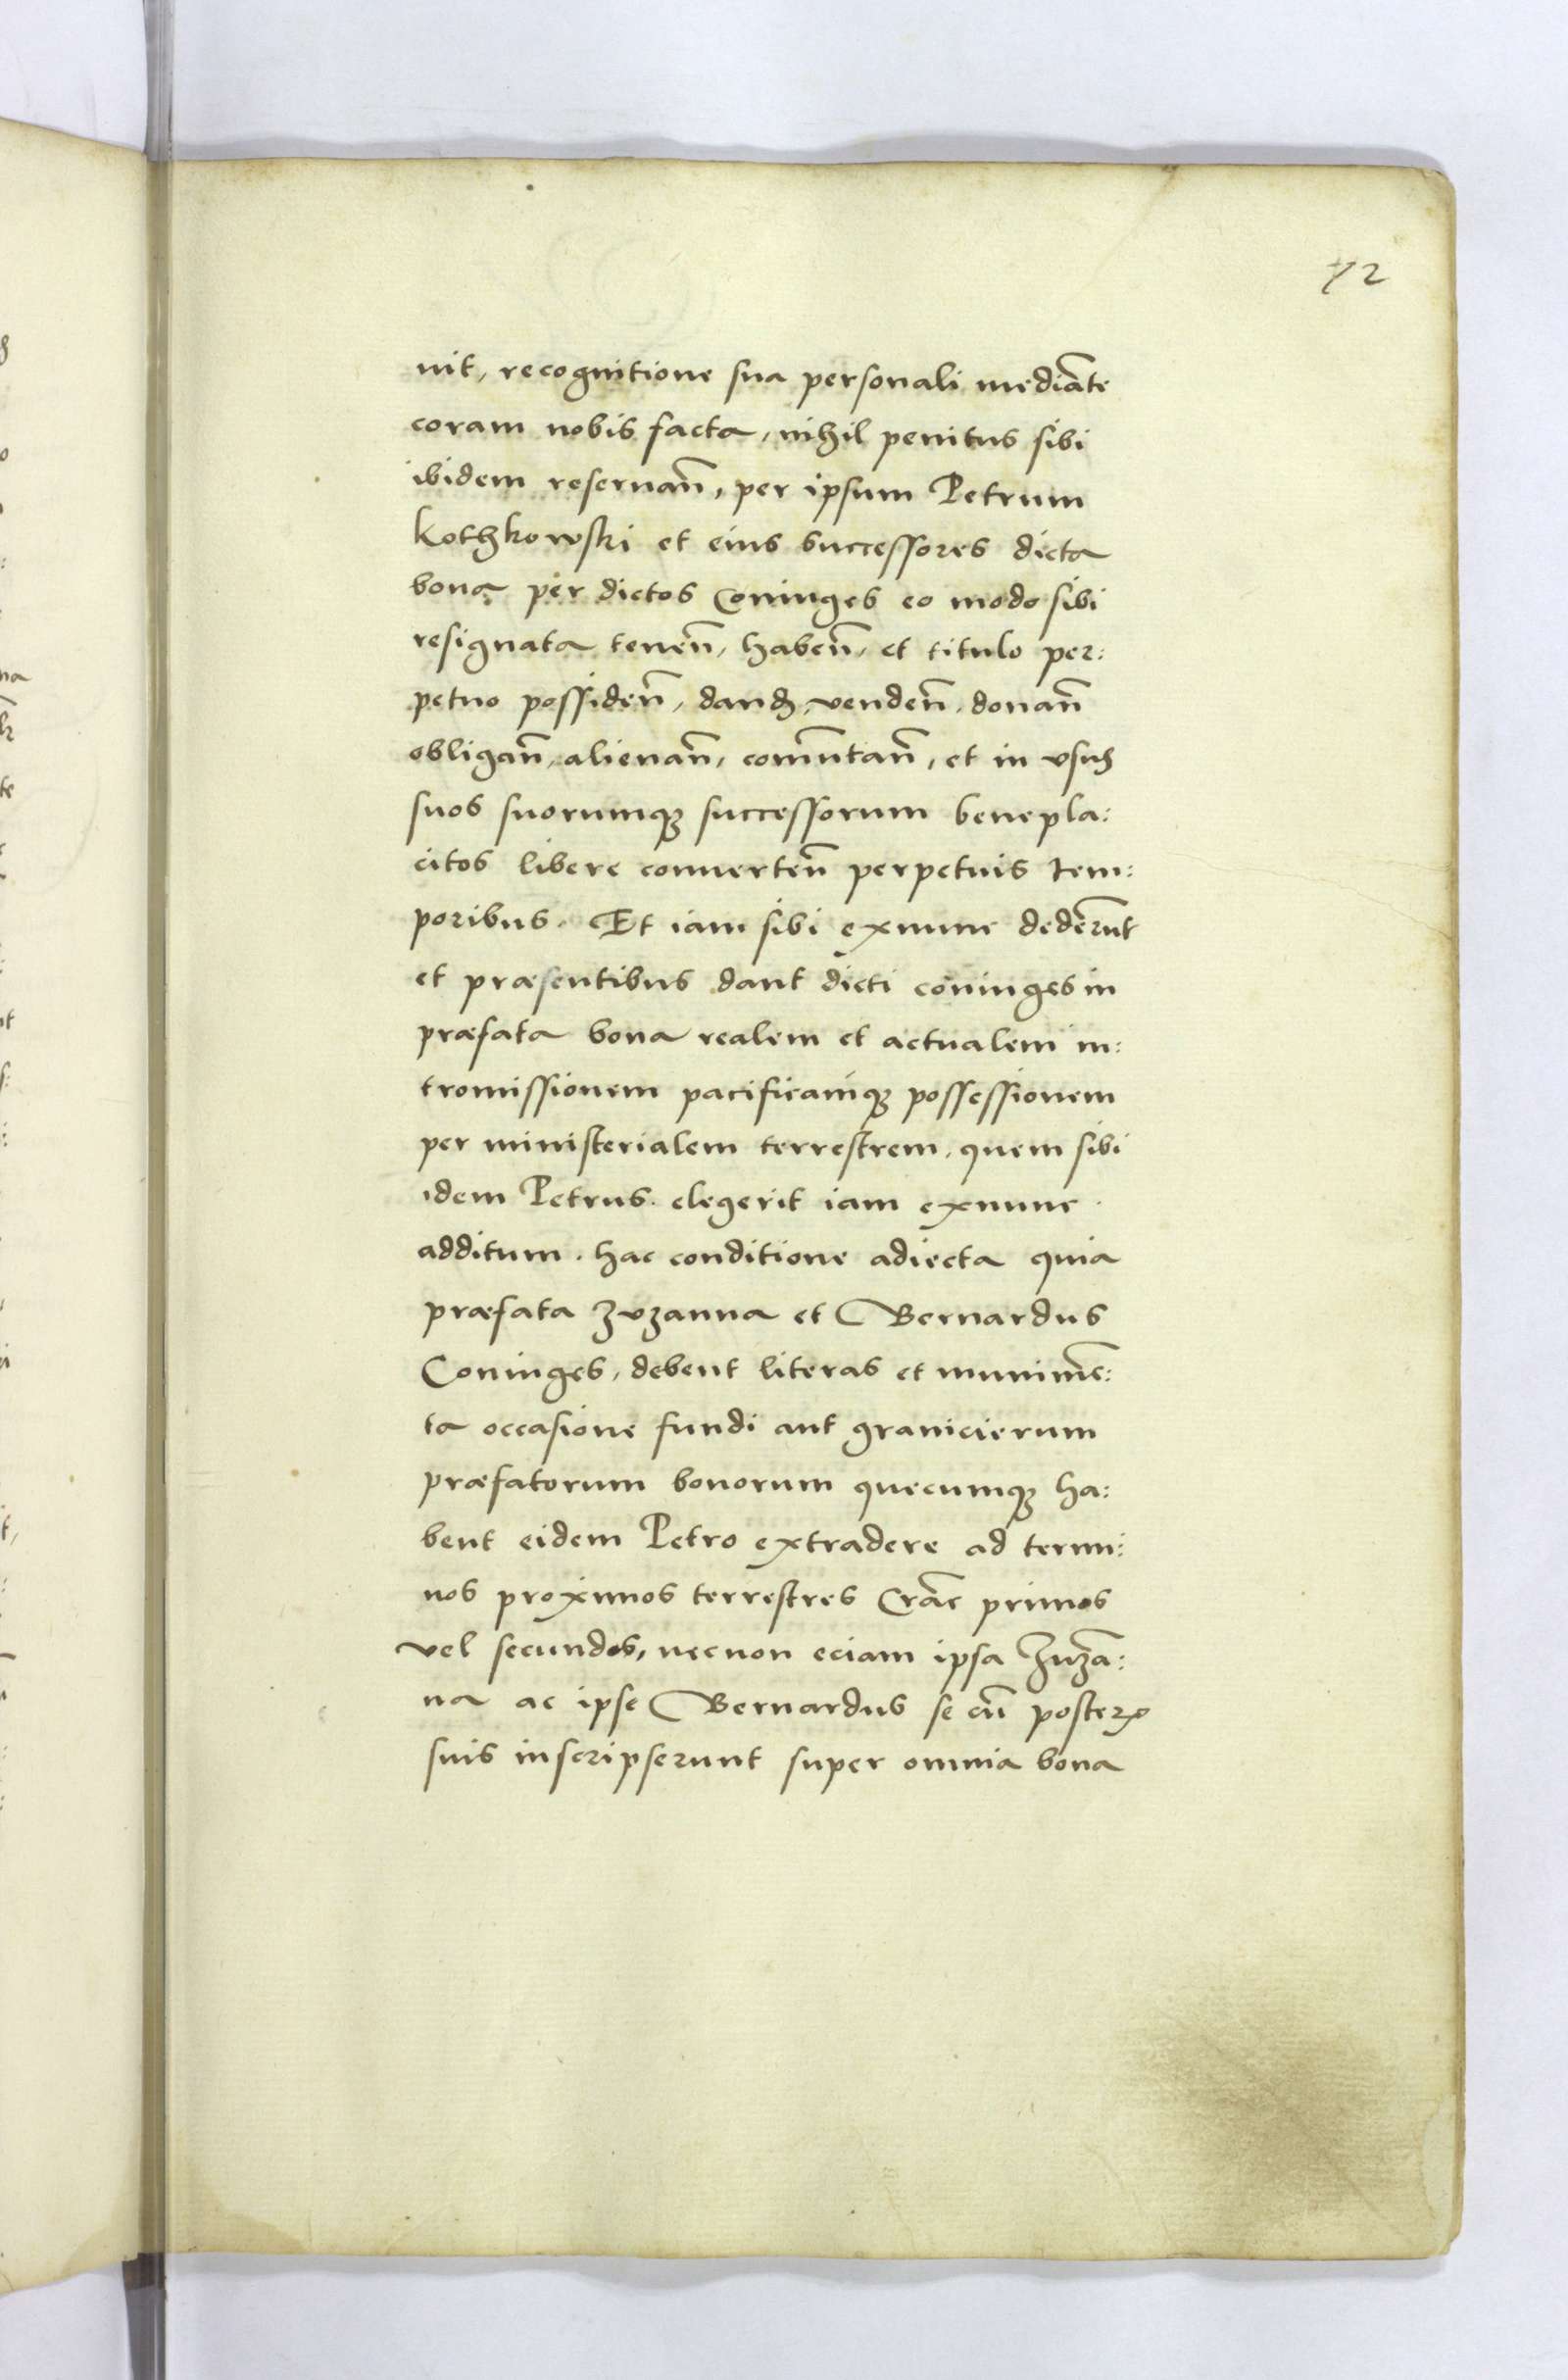 72
uit, recognitione sua personali mediãte
coram nobis facta, nihil penitus sibi
ibidem reseruañ, per ipsum Petrum
Kothkowski et eius successores dicta
bona per dictos Coniuges eo modo sibi
resignata teneñ, habeñ, et titulo per:
petuo possideñ, dand, vendeñ, donañ
obligañ, alienañ, com̃utañ, et in vsus
suos suorumq; successorum benepla:
citos libere conuerteñ perpetuis tem:
poribus. Et iam sibi exnunc dederũt
et præsentibus dant dicti coniuges in
præfata bona realem et actualem in:
tromissionem pacificamq; possessionem
per ministerialem terrestrem, quem sibi
idem Petrus elegerit iam exnunc
additum. hac conditione adiecta quia
præfata Zvzanna et Bernardus
Coniuges, debent literas et munimẽ:
ta occasione fundi aut granicierum
præfatorum bonorum quecumq; ha:
bent eidem Petro extradere ad termi:
nos proximos terrestres Crãc primos
vel secundos, necnon eciam ipsa Zuzã:
na ac ipse Bernardus se cũ posteris
suis inscripserunt super omnia bona